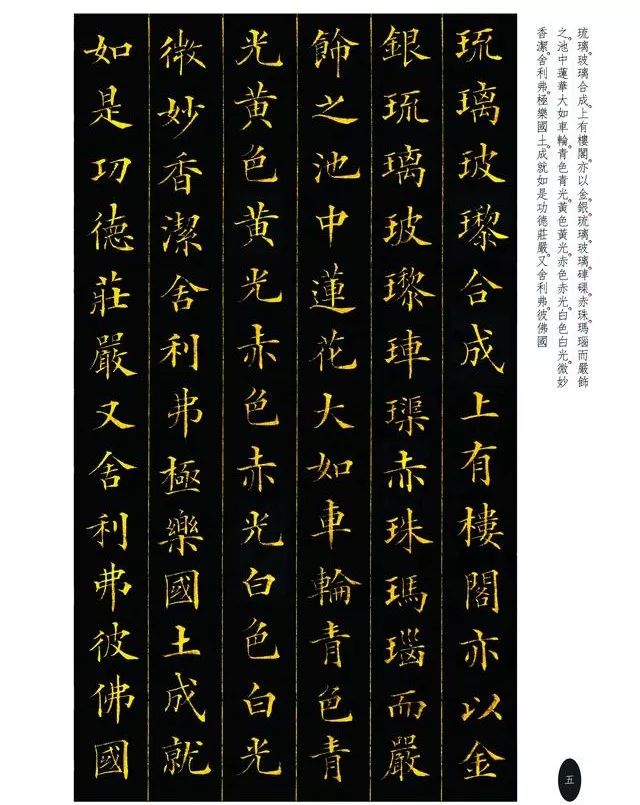 琉璃玻璃合成。上有樓閣。亦以金。銀。琉璃。玻璃。硨磲。赤珠。瑪瑙而嚴飾
之。池中蓮華大如車輪。青色青光。黃色黃光。赤色赤光。白色白光。微妙
香潔。舍利弗。極樂國土。成就如是功德莊嚴。又舍利弗。彼佛國
琉璃玻瓈合成上有樓閣亦以金
銀琉璃玻瓈𤥭璖赤珠瑪瑙而嚴
飾之池中蓮花大如車輪青色青
光黃色黃光赤色赤光白色白光
微妙香潔舍利弗極樂國土成就
如是功德莊嚴又舍利弗彼佛國
五